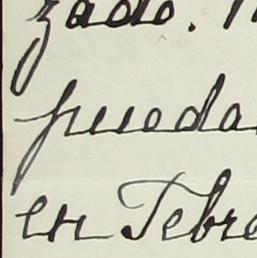 zado.
pueda
en Febre